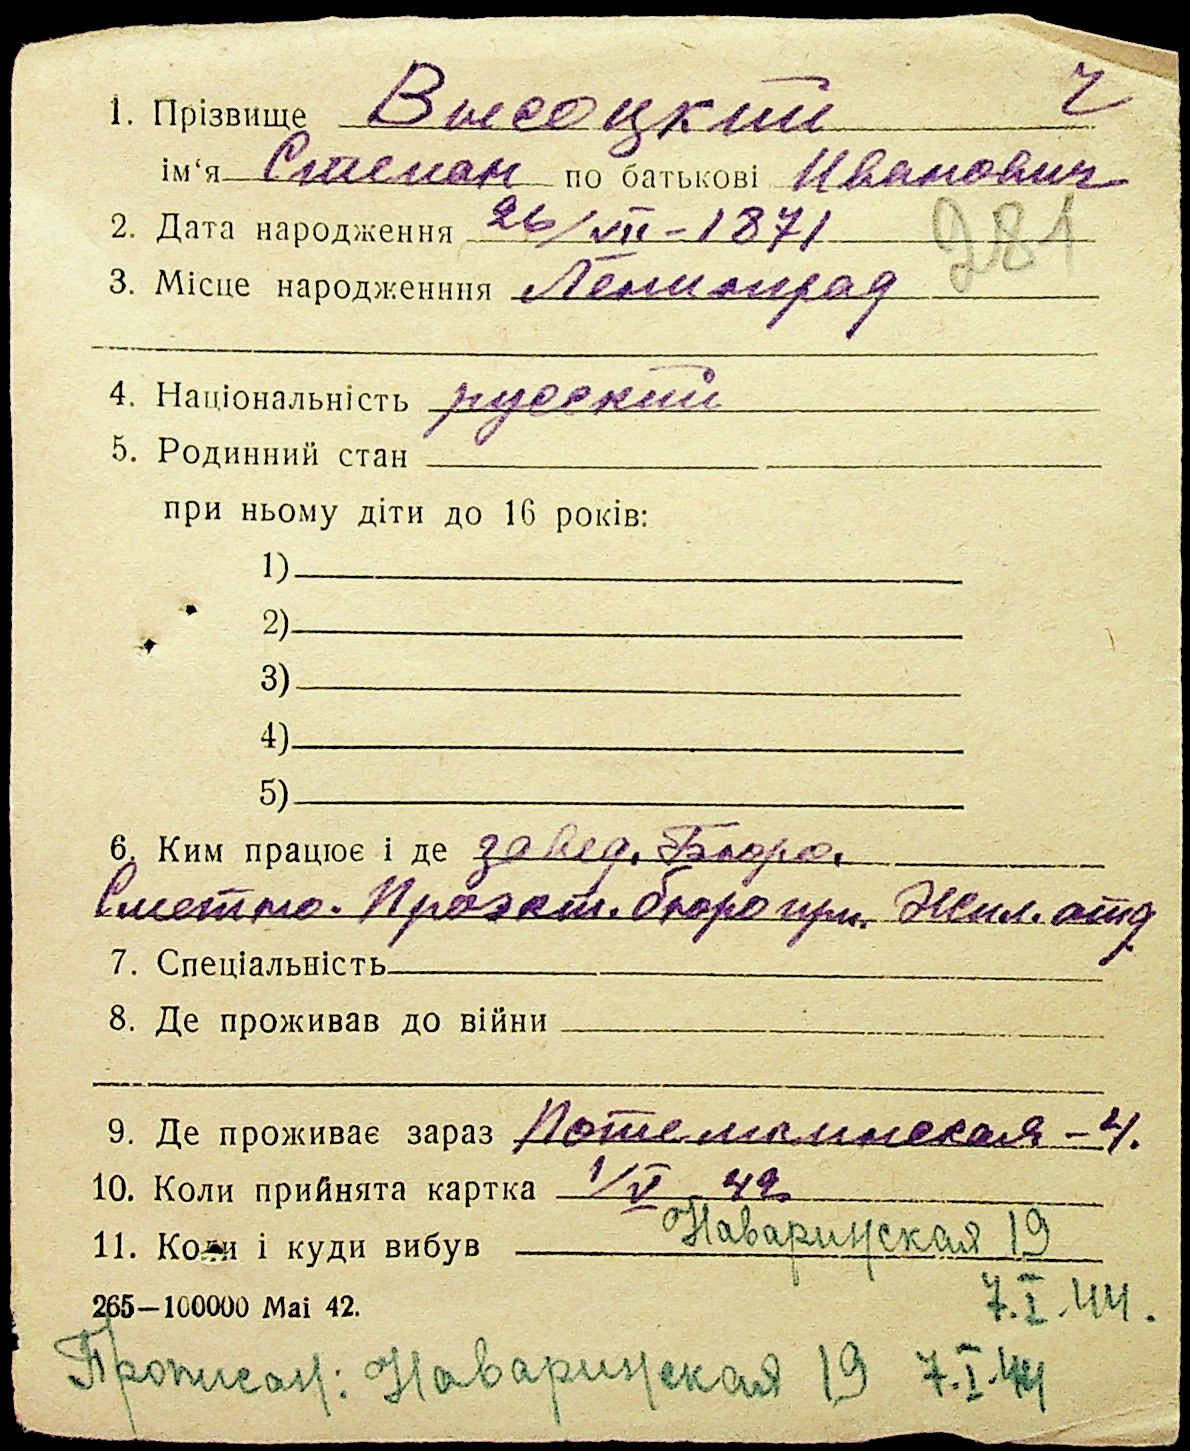 Ч
1. Прізвище Высоцкий
ім‘я Степан по батькові Иванович
2. Дата народження 26/VII - 1871
281
3. Місце народженння Ленинград
4. Національність русский
5. Родинний стан
при ньому діти до 16 років:
1)
2)
3)
4)
5)
6. Ким працює і де завед. Бюро.
Сметно. Проэкт. бюро при. Жил. отд
7. Спеціальність
8. Де проживав до війни
9. Де проживає зараз Потемкинская - 4.
10. Коли прийнята картка 1/V 42
11. Коли і куди вибув Наваринская 19
7.I.44.
265—100000 Маі 42.
Прописан: Наваринская 19 7.I.44